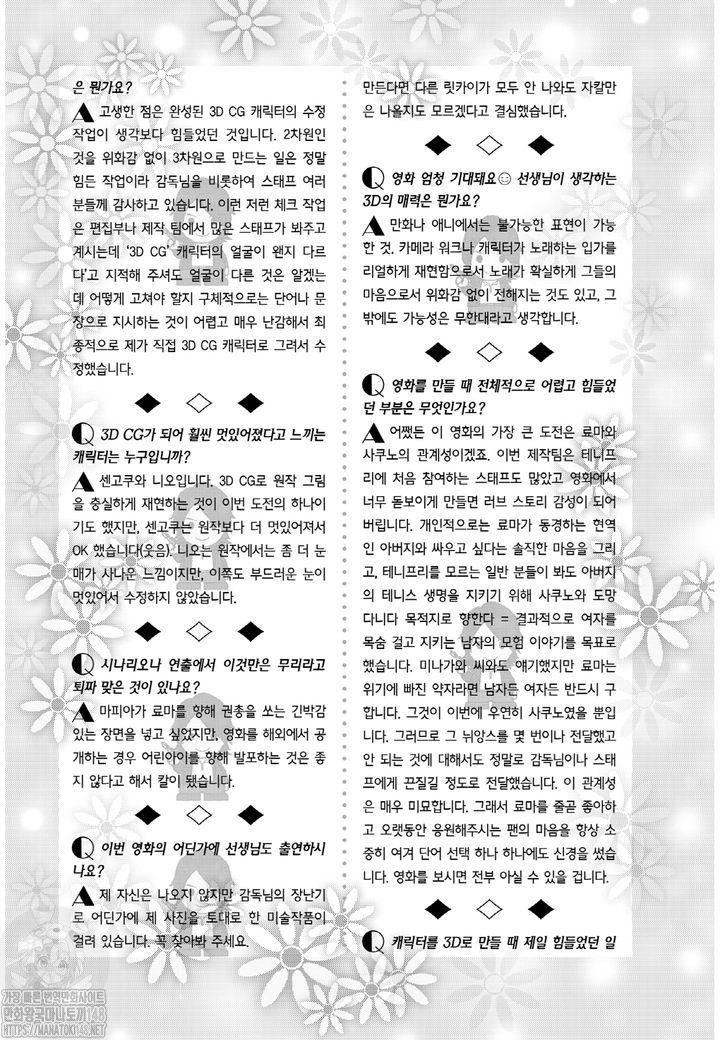 은 뭔가요?
A 고생한 점은 완성된 3D CG 캐릭터의 수정
작업이 생각보다 힘들었던 것입니다. 2차원인
것을 위화감 없이 3차원으로 만드는 일은 정말
힘든 작업이라 감독님을 비롯하여 스태프 여러
분들께 감사하고 있습니다. 이런 저런 체크 작업
은 편집부나 제작 팀에서 많은 스태프가 봐주고
계시는데 '3D CG' 캐릭터의 얼굴이 왠지 다르
다'고 지적해 주셔도 얼굴이 다른 것은 알겠는
데 어떻게 고쳐야 할지 구체적으로는 단어나 문
장으로 지시하는 것이 어렵고 매우 난감해서 최
종적으로 제가 직접 3D CG 캐릭터로 그려서 수
정했습니다.
Q 3D CG가 되어 훨씬 멋있어졌다고 느끼는
캐릭터는 누구입니까?
A 센고쿠와 니오입니다. 3D CG로 원작 그림
을 충실하게 재현하는 것이 이번 도전의 하나이
기도 했지만, 센고쿠는 원작보다 더 멋있어져서
OK 했습니다(웃음). 니오는 원작에서는 좀 더 눈
매가 사나운 느낌이지만, 이쪽도 부드러운 눈이
멋있어서 수정하지 않았습니다.
Q 시나리오나 연출에서 이것만은 무리라고
퇴짜 맞은 것이 있나요?
A 마피아가 료마를 향해 권총을 쏘는 긴박감
있는 장면을 넣고 싶었지만, 영화를 해외에서 공
개하는 경우 어린아이를 향해 발포하는 것은 좋
지 않다고 해서 칼이 됐습니다.
Q 이번 영화의 어딘가에 선생님도 출연하시
나요?
A 제 자신은 나오지 않지만 감독님의 장난기
로 어딘가에 제 사진을 토대로 한 미술작품이
걸려 있습니다. 꼭 찾아봐 주세요.
만든다면 다른 릿카이가 모두 안 나와도 자칼만
은 나올지도 모르겠다고 결심했습니다.
Q 영화 엄청 기대돼요☺ 선생님이 생각하는
3D의 매력은 뭔가요?
A 만화나 애니에서는 불가능한 표현이 가능
한 것. 카메라 워크나 캐릭터가 노래하는 입가를
리얼하게 재현함으로서 노래가 확실하게 그들의
마음으로서 위화감 없이 전해지는 것도 있고, 그
밖에도 가능성은 무한대라고 생각합니다.
Q 영화를 만들 때 전체적으로 어렵고 힘들었
던 부분은 무엇인가요?
A 어쨌든 이 영화의 가장 큰 도전은 료마와
사쿠노의 관계성이겠죠. 이번 제작팀은 테니프
리에 처음 참여하는 스태프도 많았고 영화에서
너무 돋보이게 만들면 러브 스토리 감성이 되어
버립니다. 개인적으로는 료마가 동경하는 현역
인 아버지와 싸우고 싶다는 솔직한 마음을 그리
고, 테니프리를 모르는 일반 분들이 봐도 아버지
의 테니스 생명을 지키기 위해 사쿠노와 도망
다니다 목적지로 향한다 = 결과적으로 여자를
목숨 걸고 지키는 남자의 모험 이야기를 목표로
했습니다. 미나가와 씨와도 얘기했지만 료마는
위기에 빠진 약자라면 남자든 여자든 반드시 구
합니다. 그것이 이번에 우연히 사쿠노였을 뿐입
니다. 그러므로 그 뉘앙스를 몇 번이나 전달했고
안 되는 것에 대해서도 정말로 감독님이나 스태
프에게 끈질길 정도로 전달했습니다. 이 관계성
은 매우 미묘합니다. 그래서 료마를 줄곧 좋아하
고 오랫동안 응원해주시는 팬의 마음을 항상 소
중히 여겨 단어 선택 하나 하나에도 신경을 썼습
니다. 영화를 보시면 전부 아실 수 있을 겁니다.
Q 캐릭터를 3D로 만들 때 제일 힘들었던 일
가장 빠른 번역만화사이트
만화왕국마나토끼148
HTTPS://MANATOKI148.NET